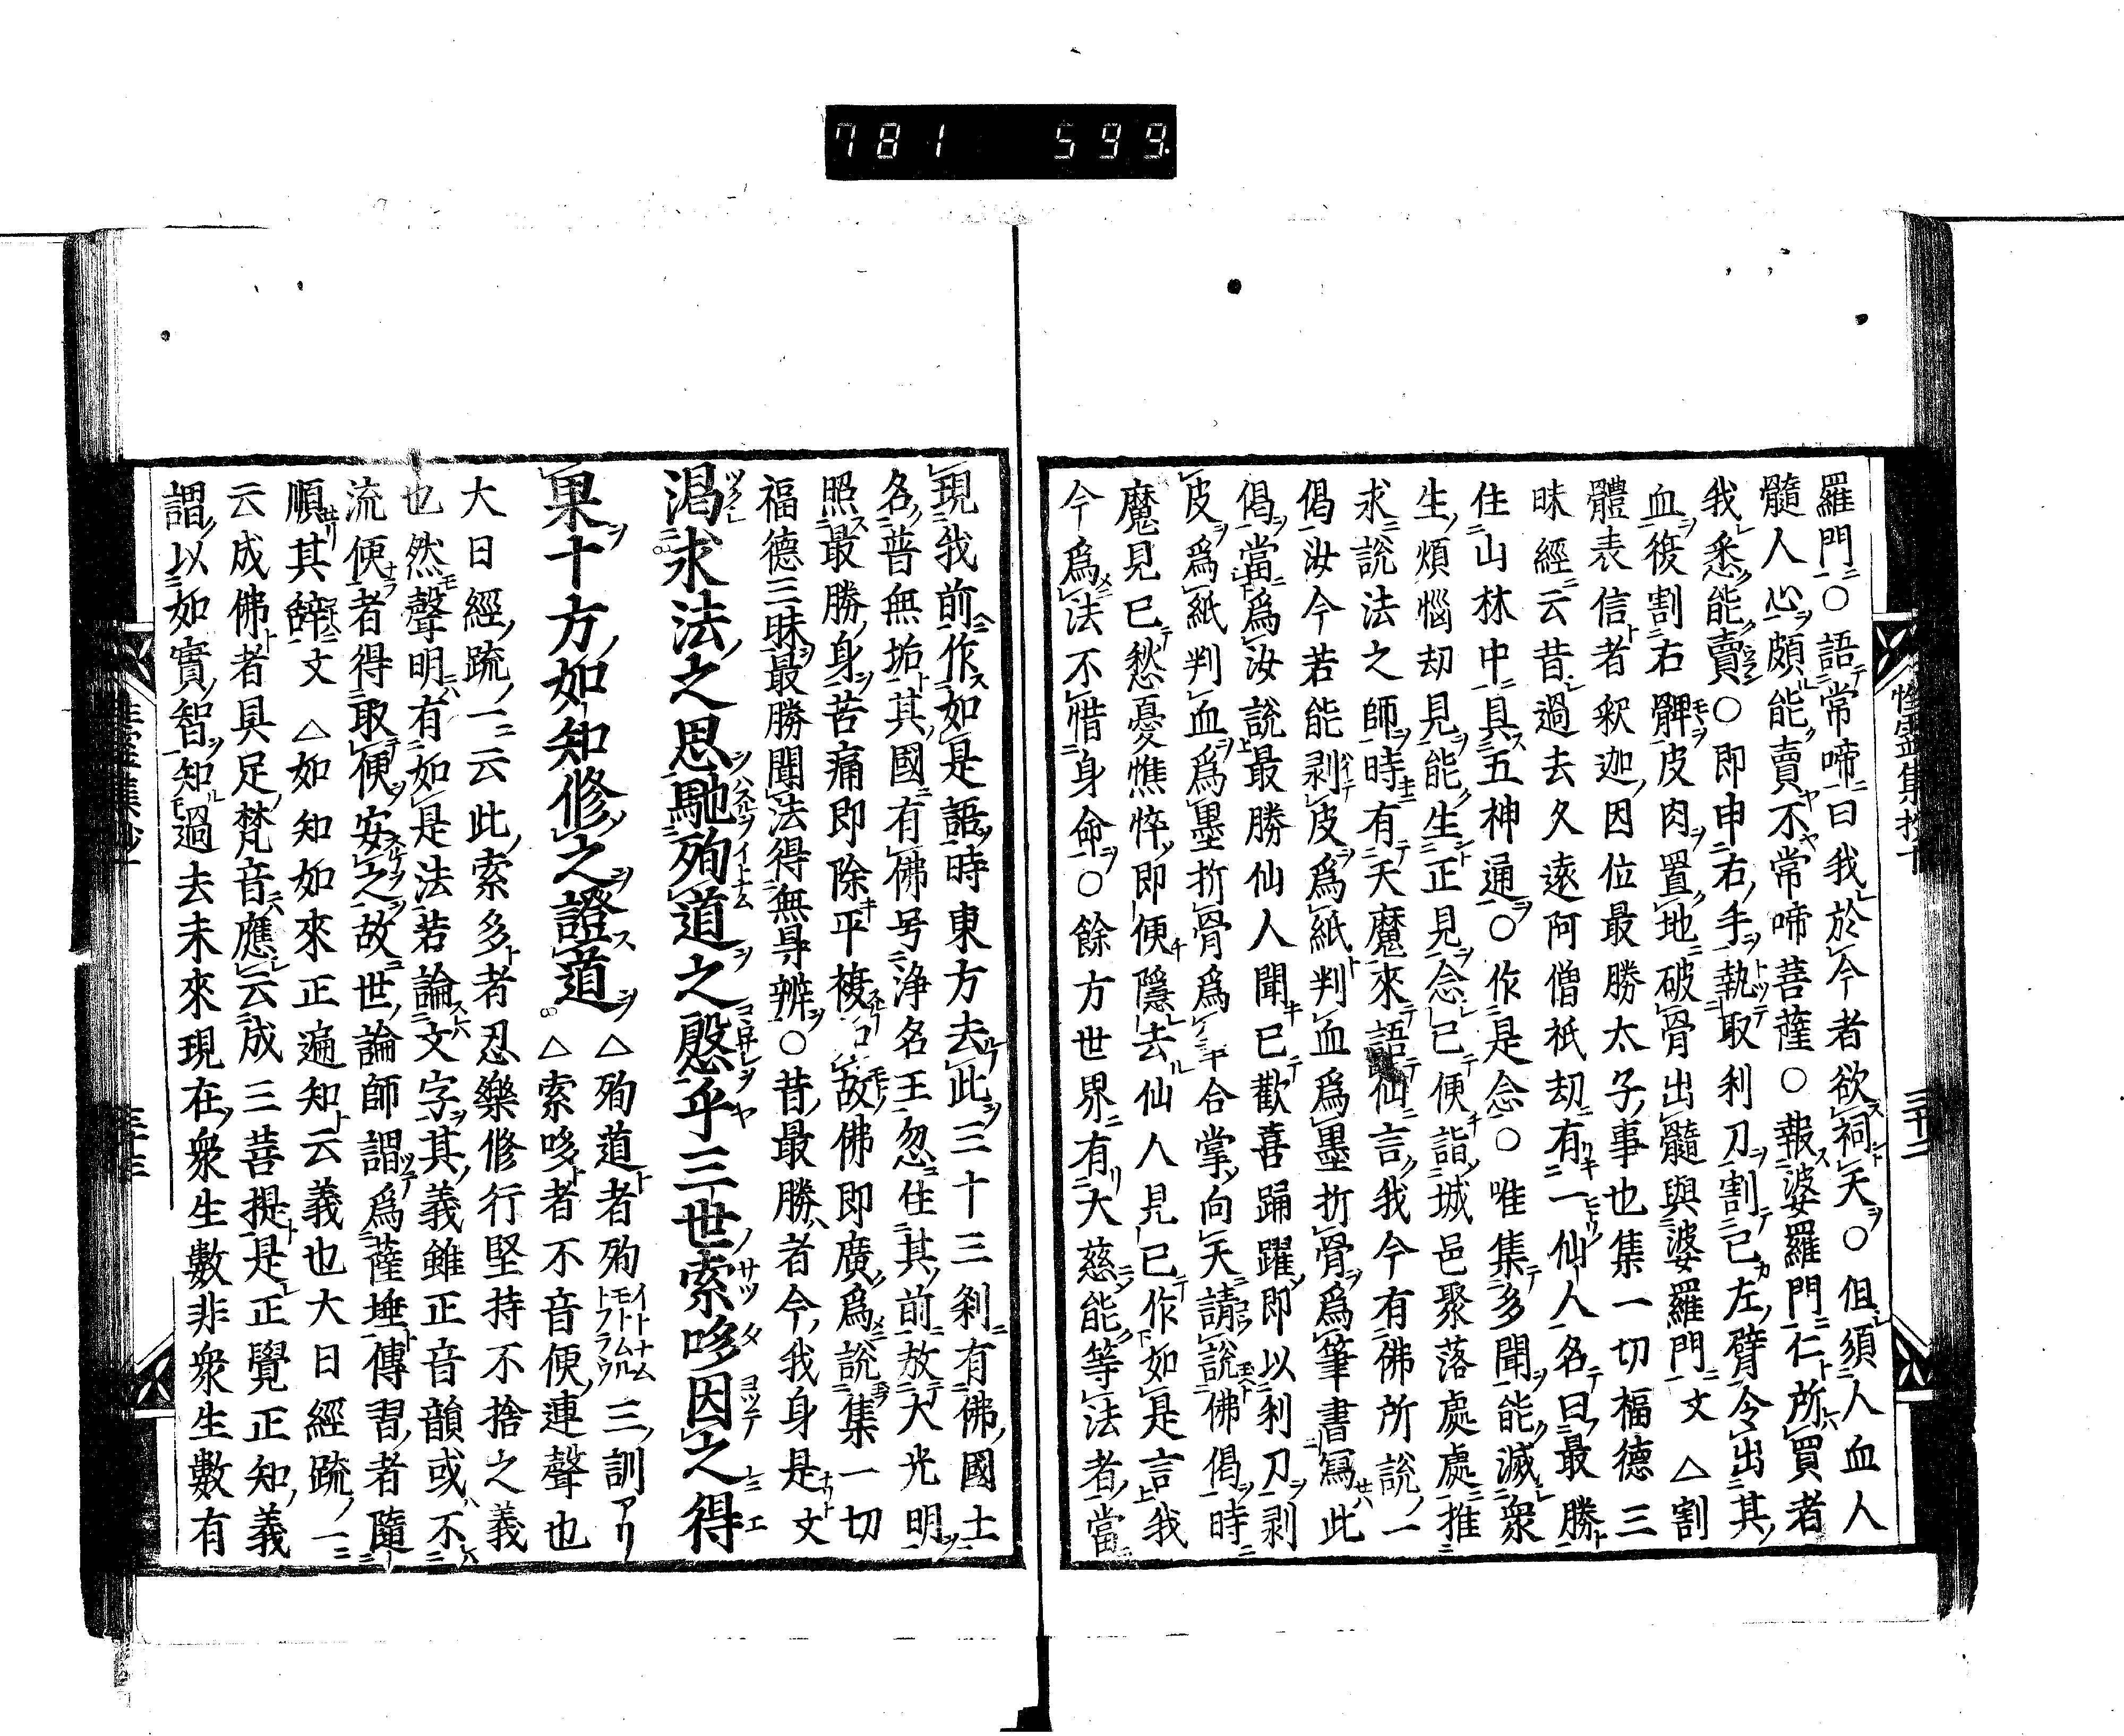 781 599
羅門○語常啼曰我於今者欲祠天○但須人血人
髓人心頗能賣不常啼菩薩○報婆羅門仁所買者
我悉能賣○即申右手執取利刀割已左臂令出其
血復割右髀皮肉置地破骨出髓與婆羅門文 △割
體表信者釈迦因位最勝太子事也集一切福德三
昧經云昔過去久遠阿僧祇劫有一仙人名曰最勝
住山林中具五神通○作是念○唯集多聞能滅衆
生煩惱劫見能生正見念已便詣城邑聚落處處推
求說法之師時有天魔來語仙言我今有佛所說一
偈汝今若能剥皮爲紙判血爲墨折骨爲筆書寫此
偈當爲汝說最勝仙人聞已歡喜踊躍即以利刀剥
皮爲紙判血爲墨折骨爲筆合掌向天請說佛偈時
魔見已愁憂憔悴即便隱去仙人見已作如是言我
今爲法不惜身命○餘方世界有大慈能等法者當
現我前作如是語時東方去此三十三刹有佛國土
名普無垢其國有佛号浄名王忽住其前放大光明
照最勝身苦痛即除平複故佛即廣爲說集一切
福德三昧最勝聞法得無㝵辨○昔最勝者今我身是文
渇求法之思馳殉道之慇乎三世索哆因之得
果十方如知修之證道 △殉道者殉イトナムモトムルトフラウ三訓アリ
△索哆者不音便連聲也
大日經疏一云此索多者忍樂修行堅持不捨之義
也然聲明有如是法若論文字其義雖正音韻或不
流便者得取便安之故世論師謂爲薩埵傳習者隨
順其辭文 △如知如來正遍知云義也大日經疏一
云成佛者具足梵音應云成三菩提是正覺正知義
謂以如實智知過去未來現在衆生數非衆生數有